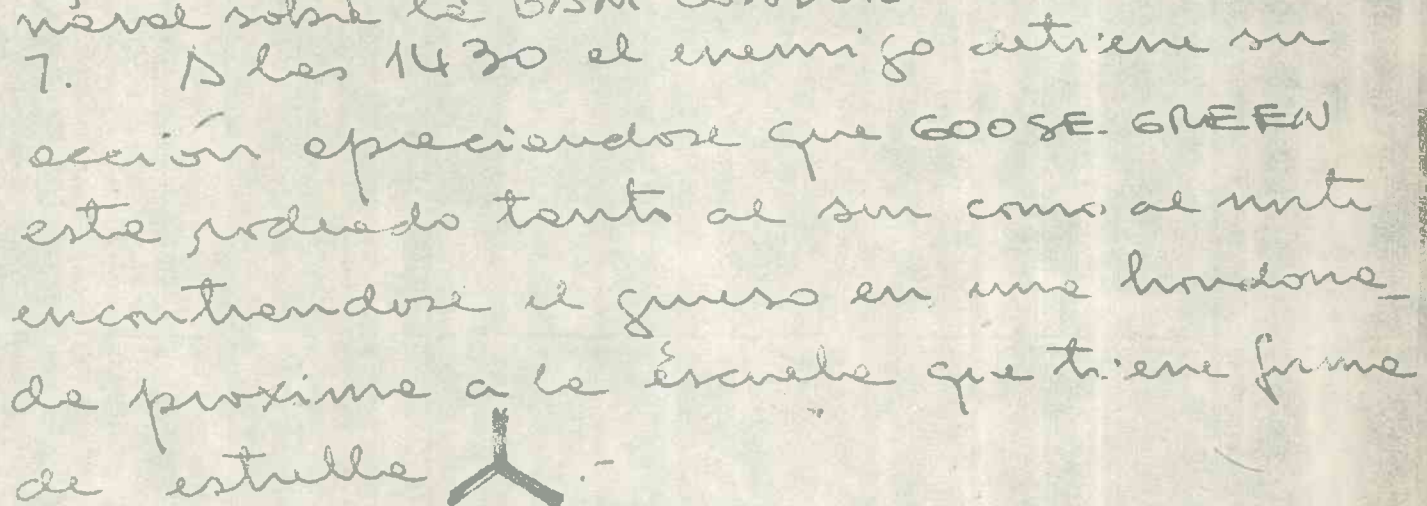 naval sobre la BAM CONDOR
7. A las 1430 el enemigo detiene su
acción apreciandose que GOOSE. GREEN
esta rodeado tanto al sur como al norte
encontrandose el grueso en una hondona_
da proxima a la escuela que tiene forma
de estrella .-